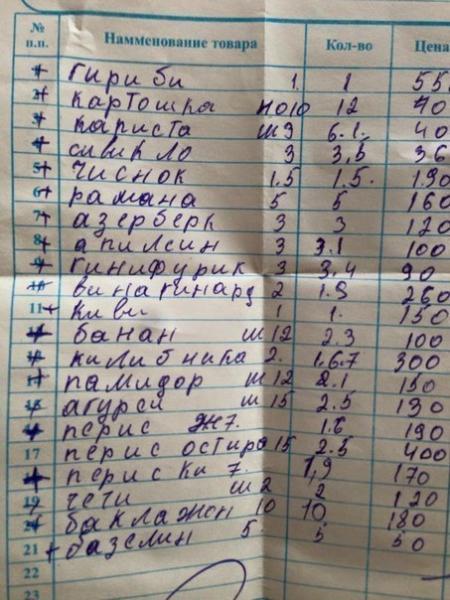 № п.п. Наmменование товара Кол-во Цена
1 гириби 1. 1 55
2 картошка 12 40
3 каписта ш3 6.1. 40
4 сивикло 3 3,5 36
5 чиснок 1.5 1.5. 190
6 рамана 5 5 160
7 азерберк 3 3 120
8 апилсин 3 3.1 100
9 гинифурик 3 3,4 90
10 винагинард 2 1.9 260
11 киви 1 1. 150
банан ш12 2.3 100
килибника 2. 1,6.7 300
памидор ш12 150
агурси ш15 2.5 130
перис ж7. 190
17 перис остиро 15 2.5 400
перис ки 7. 1,9 170
19 чети ш2 2 120
баклажон 10 10 180
21 базелин 5 5 50
22
23